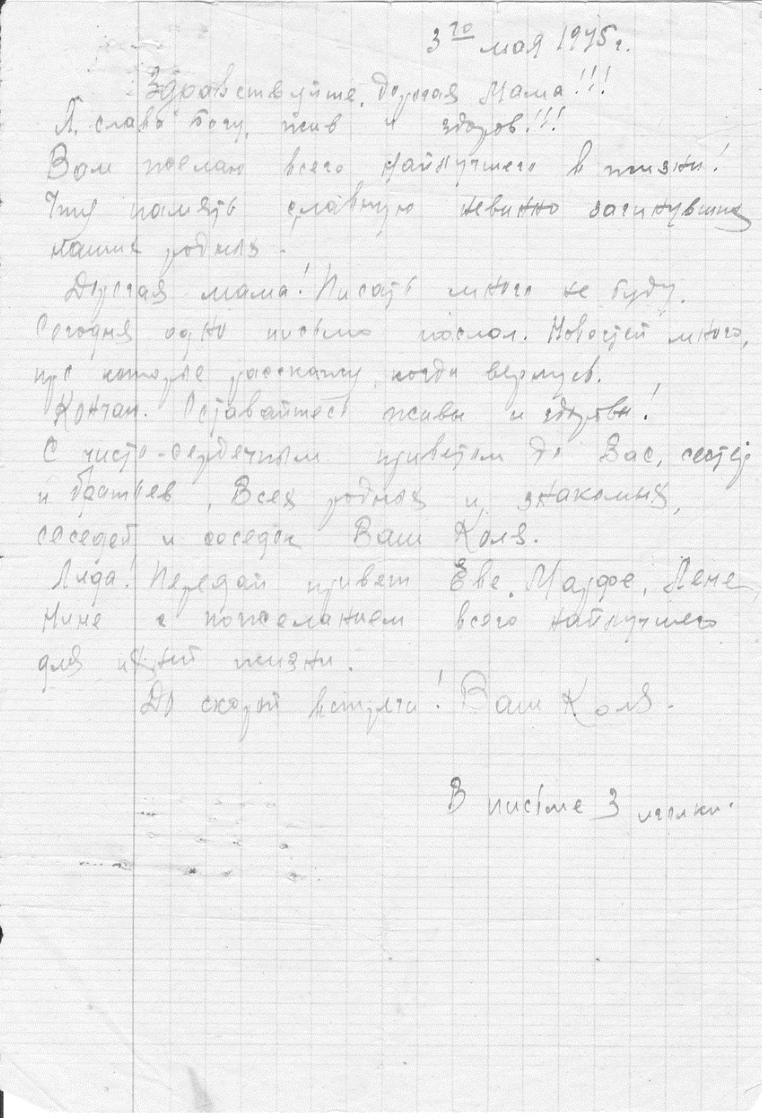 3го мая 1945г.
Здравствуйте, дорогая Мама!!!
Я, слава Богу, жив и здоров!!!
Вам желаю всего найлучшего в жизни!
Чту память славную невинно загинувших
наших родных.
Дорогая мама! Писать много не буду.
Сегодня одно письмо послал. Новостей много,
про которые расскажу, когда вернусь.
Кончаю. Оставайтесь живы и здоровы!
С чисто-сердечным приветом до Вас, сестёр
и братьев, Всех родных и знакомых,
соседей и соседок Ваш Коля.
Лида! Передай привет Еве, Марфе, Лене,
Нине с пожеланием всего найлучшего
для жизни.
До скорой встречи! Ваш Коля.
В письме 3 иголки.